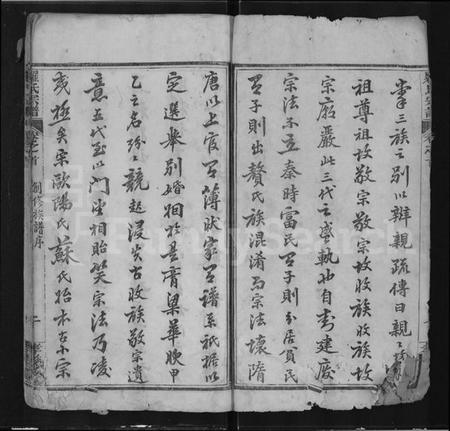 掌三族之别以辨親疏傳曰親〻故
祖尊祖故敬宗敬宗故收族收族故
宗廟嚴此三代之盛軌也自封建廢
宗法不立秦時富民有子則分居貧民
有子則出贅氏族混淆而宗法壞隋
唐以上官有薄狀家有譜系祇據以
定選舉別婚相於是膏粱華腴甲
乙之名紛〻競起浸失古收族敬宗遺
意五代至以門望相貽笑宗法乃凌
或極矣宋歐陽氏蘇氏始本古小宗
羅氏宗譜
卷之首
創修族譜序
二
FamilySearch